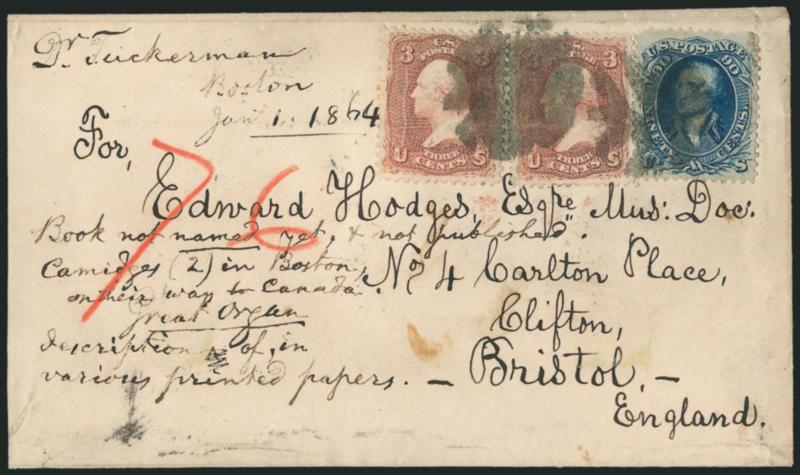 Dr. Tuckerman
Boston
Jany. 1. 1864
3 U.S. POSTAGE 3
U THREE CENTS S
3 U.S. POSTAGE 3
U THREE CENTS S
90 U.S. POSTAGE 90
U NINETY CENTS S
For,
76
Edward Hodges, Esqre. Mus: Doc:
Book not named yet, & not published".
Camidges (2) in Boston,
on their way to Canada.
Great Organ
description of, in
various printed papers. –
No. 4 Carlton Place,
Clifton,
Bristol, –
England.